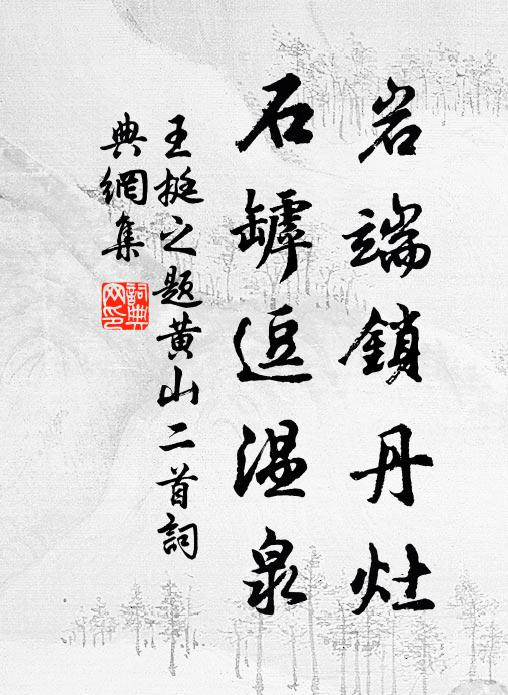 岩端鎖丹灶
石罅逗温泉
王挺之题黄山二首詞
典網集
詞典
网印